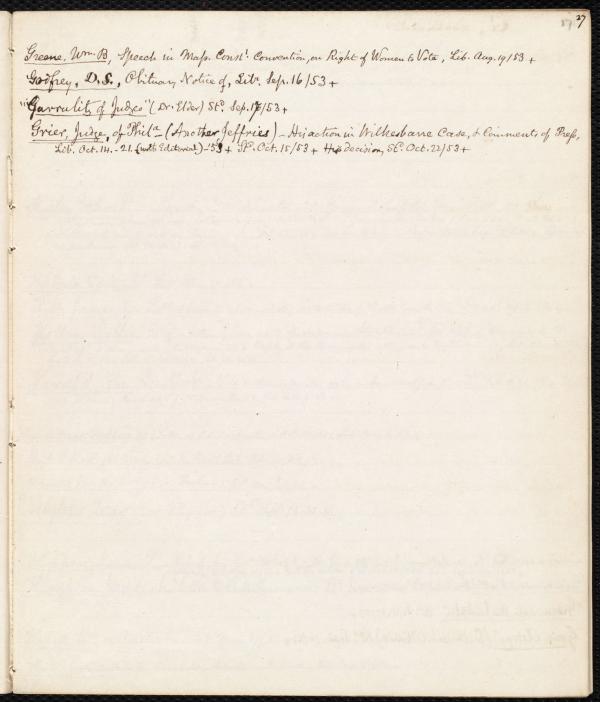 27
Greene, Wm. B, Speech in Mass. Const! Convention, on Right of Women to Vote, Lib. Aug. 19/53 +
Godfrey, D.S., Obituary Notice of, Lib. Sep. 16/53 +
"Garrulity of Judges" (Dr. Elder) Sto. Sep. 17/53 +
Grier, Judge, of Phila. (Another Jeffries) - His action in Wilkesbarre Case, & Comments of Press,
Lib. Oct. 14. - 21. (with Editorial) - 53 + Sto. Oct. 15/53 + His decision, Sto. Oct. 22/53 +